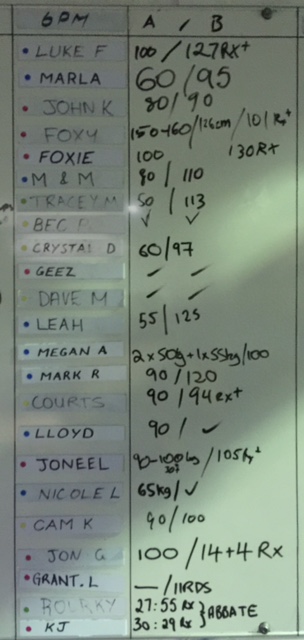 6PM A / B
LUKE F 100 / 127RX+
MARLA 60/95
JOHN K 80/90
FOXY 150-160/126cm/101Rx+
FOXIE 100 130RX
M & M 90 / 110
TRACEY M 50 / 113
BEC ✓ ✓
CRYSTAL D 60/97
GEEZ
DAVE M
LEAH 55/125
MEGAN A 2x50kg+1x55kg/100
MARK R 90/120
COURTS 90/94RX+
LLOYD 90/✓
JONEEL 90-100kg /105Rx+
NICOLE L 65kg/✓
CAM K 90/100
JON G 100/14+4 Rx
GRANT.L —/11RDS
27:55 Rx
KJ 30:29 Rx } ABBATE